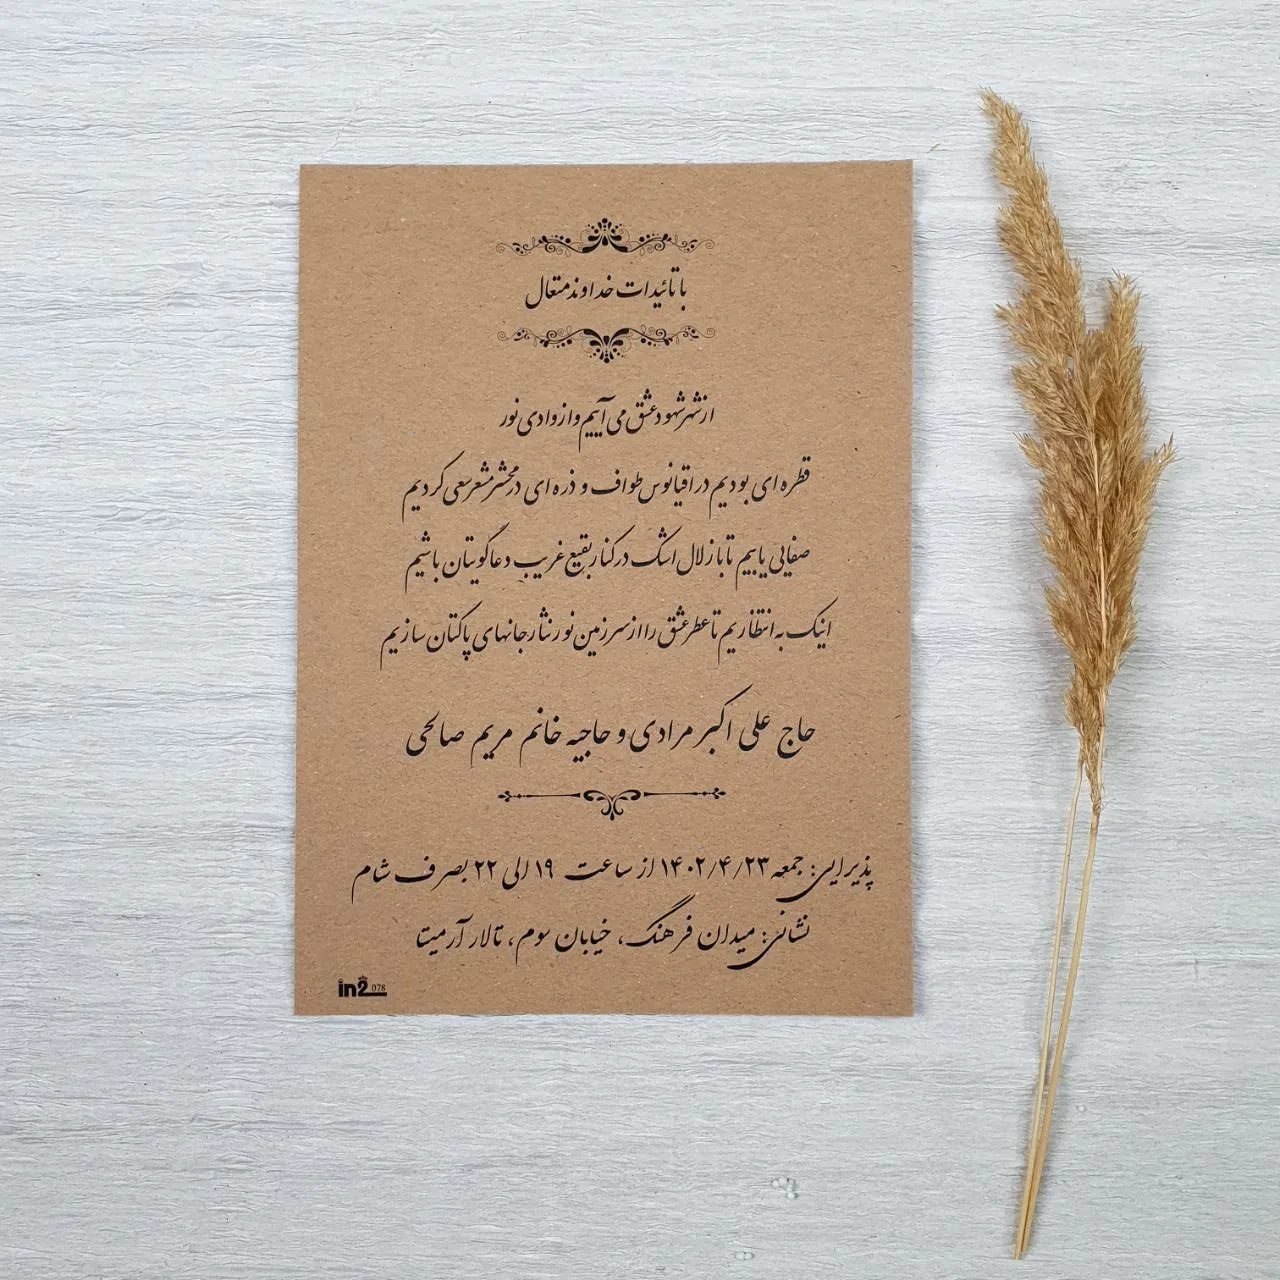 با تائیدات خداوند متعال
از شهر شهود عشق می آییم و از وادی نور
قطره ای بودیم در اقیانوس طواف و ذره ای در محشر مشعر سعی کردیم
صفایی یابیم تا با زلال اشک در کنار بقیع غریب دعاگویتان باشیم
اینک به انتظاریم تا عطر عشق را از سرزمین نور نثار جانهای پاکتان سازیم
حاج علی اکبر مرادی و حاجیه خانم مریم صالحی
پذیرایی: جمعه ۱۴۰۲/۴/۲۳ از ساعت ۱۹ الی ۲۲ بصرف شام
نشانی: میدان فرهنگ، خیابان سوم، تالار آرمیتا
in2 078